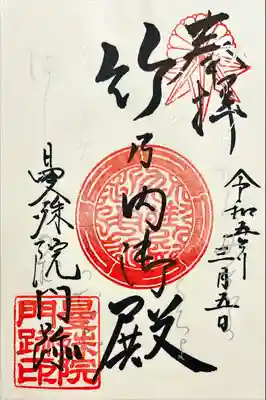 奉拝
令和五年
三月五日
竹乃内御殿
曼殊院門跡
曼殊院
門跡印